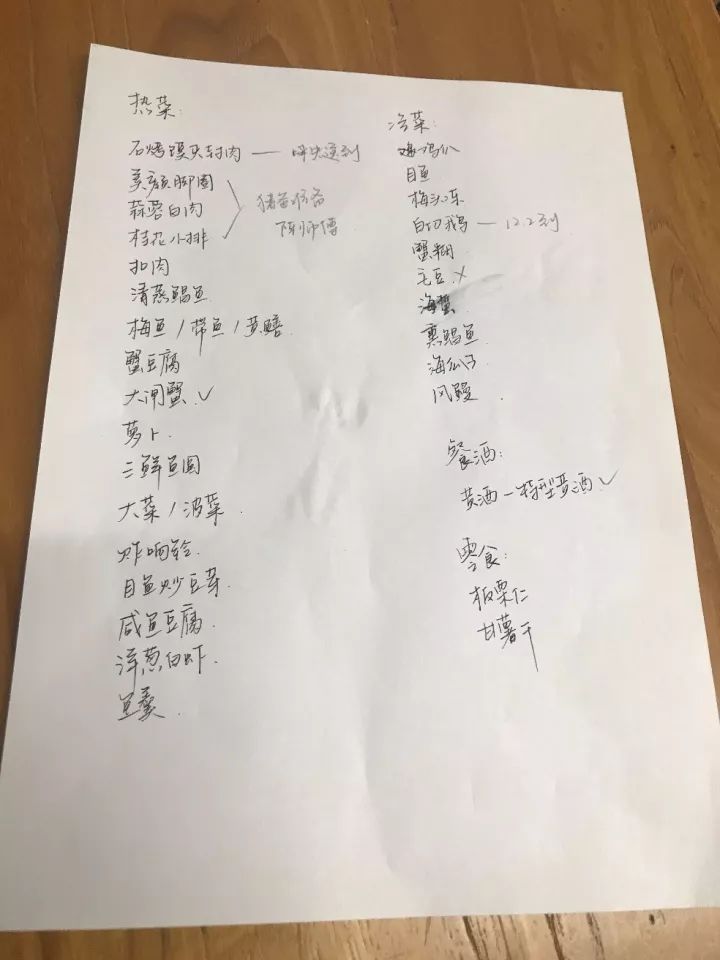 热菜:
石烤馒头封肉 —
美颜脚圈
蒜蓉白肉
桂花小排
陈师傅
扣肉
清蒸鲳鱼
梅鱼/带鱼/黄鳝.
蟹豆腐
大闸蟹.✓
萝卜.
三鲜鱼圆
大菜/菠菜.
炸响铃.
目鱼炒豆芽.
咸鱼豆腐.
洋葱白虾.
鱼羹.
冷菜:
目鱼
梅头冻
白切鹅 — 12.2到
蟹糊
毛豆.×
海蜇
熏鲳鱼
海瓜子
风鳗
餐酒:
黄酒—特型黄酒.✓
零食:
板栗仁
甘薯干